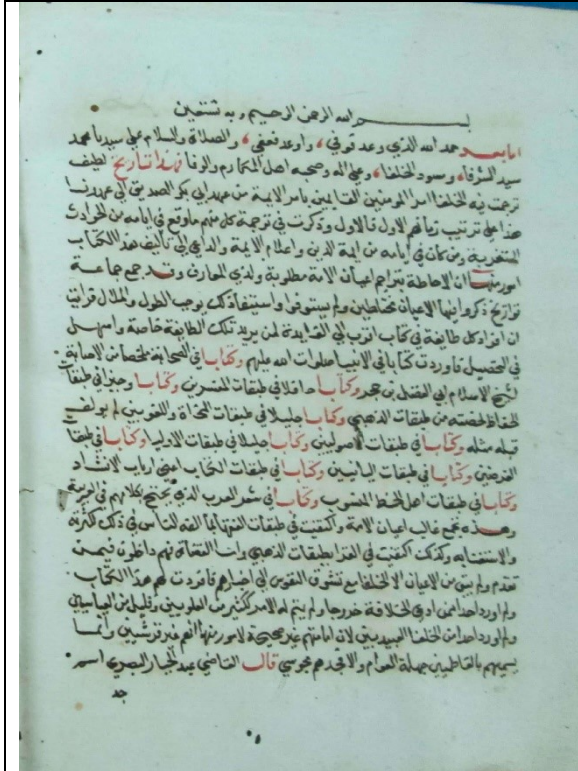 بسم الله الرحمن الرحيم وبه نستعين
اما بعد حمد الله الذي وعد فوفي، واوعد فعفي، والصلاة والسلام علي سيدنا محمد
سيد الشرفا، ومسود الخلفا، وعلي اله وصحبه اهل المكارم والوفا فهذا تاريخ لطيف
ترجمت فيه الخلفا امرا المومنين القايمين بامر الامة من عهد ابي بكر الصديق الي عهدنا
هذا علي ترتيب زمانهم الاول فالاول وذكرت في ترجمة كل منهم ما وقع في ايامه من الحوادث
المستغربة ومن كان في ايامه من ايمة الدين واعلام الامة والداعي الي تاليف هذا الكتاب
امور منها ان الاحاطة بتراجم اعيان الامة مطلوبة ولذي المعارف وقد جمع جماعة
تواريخ ذكروا فيها الاعيان مختلطين ولم يستوفوا واستيفا ذلك يوجب الطول والملال فرايت
ان افراد كل طايفة في كتاب اقرب الي الفايدة لمن يريد تلك الطايفة خاصة واسهل
في التحصيل فافردت كتابا في الانبيا صلوات الله عليهم وكتابا في الصحابة ملخصا من الاصابة
لشيخ الاسلام ابي الفضل بن حجر وكتابا حافلا في طبقات المفسرين وكتابا وجيزا في طبقات
الحفاظ لخصته من طبقات الذهبي وكتابا جليلا في طبقات النحاة واللغويين لم يولف
قبله مثله وكتابا في طبقات الاصوليين وكتابا جليلا في طبقات الاوليا وكتابا في طبقات
الفرضيين وكتابا في طبقات البيانيين وكتابا في طبقات الكتاب اعني ارباب الانشاد
وكتابا في طبقات اهل الخط المنسوب وكتابا في شعر العرب الذي يحتج بكلامهم في العربية
وهذه تجمع غالب اعيان الامة واكتفيت في طبقات الفقها بما الفه الناس في ذلك لكثرته
والاستغنا به وكذلك اكتفيت في القرا بطبقات الذهبي واما القضاة فهم داخلون فيمن
تقدم ولم يبق من الاعيان الا الخلفا مع تشوق النفوس الي اخبارهم فافردت لهم هذا الكتاب
ولم اورد احدا ممن ادعي الخلافة خروجا ولم يتم له الامر ككثير من العلويين وقليل من العباسيين
ولم اورد احدا من الخلفا العبيديين لان امامتهم غير صحيحة لامور منها انهم غير قرشيين وانما
يسميهم بالفاطميين جهلة العوام والا فجدهم مجوسي قال القاضي عبد الجبار البصري اسم
جد